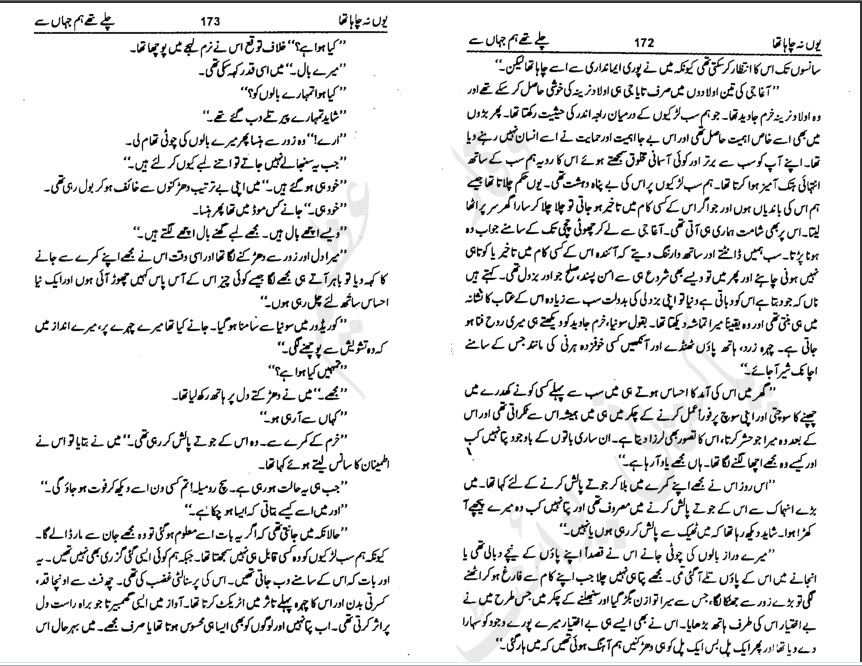 یوں نہ چاہا تھا 172 چلے تھے ہم جہاں سے
سانسوں تک اس کا انتظار کر سکتی تھی کیونکہ میں نے پوری ایمانداری سے اسے چاہا تھا لیکن۔“
”آغا جی کی تین اولادوں میں صرف تایا جی ہی اولاد نرینہ کی خوشی حاصل کر سکے تھے اور
وہ اولاد نرینہ خرم جاوید تھا۔ جو ہم سب لڑکیوں کے درمیان راجہ اندر کی حیثیت رکھتا تھا۔ پھر بڑوں
میں بھی اسے خاص اہمیت حاصل تھی اور اس بے جا اہمیت اور حمایت نے اسے انسان نہیں رہنے دیا
تھا۔ اپنے آپ کو سب سے برتر اور کوئی آسمانی مخلوق سمجھتے ہوئے اس کا رویہ ہم سب کے ساتھ
انتہائی ہتک آمیز ہوا کرتا تھا۔ ہم سب لڑکیوں پر اس کی بے پناہ دہشت تھی۔ یوں حکم چلاتا تھا جیسے
ہم اس کی باندیاں ہوں اور جو اگر اس کے کسی کام میں تاخیر ہو جاتی تو چلا چلا کر سارا گھر سر پر اٹھا
لیتا۔ اس پر بھی شامت ہماری ہی آتی تھی۔ آغا جی سے لے کر چھوٹی چچی تک کے سامنے جواب دہ
ہونا پڑتا۔ سب ہمیں ڈانٹتے اور ساتھ وارننگ دیتے کہ آئندہ اس کے کسی کام میں تاخیر یا کوتاہی
نہیں ہونی چاہئے اور پھر میں تو ویسے بھی شروع ہی سے امن پسند، صلح جو اور بزدل تھی۔ کہتے ہیں
ناں کہ جو دبتا ہے اس کو دباتی ہے دنیا تو اپنی بزدلی کی بدولت سب سے زیادہ اس کے عتاب کا نشانہ
میں ہی بنتی تھی اور وہ یقیناً میرا تماشہ دیکھتا تھا۔ بقول سونیا، خرم جاوید کو دیکھتے ہی میری روح فنا ہو
جاتی ہے۔ چہرہ زرد، ہاتھ پاؤں ٹھنڈے اور آنکھیں کسی خوفزدہ ہرنی کی مانند جس کے سامنے
اچانک شیر آ جائے۔“
”گھر میں اس کی آمد کا احساس ہوتے ہی میں سب سے پہلے کسی کونے کھدرے میں
چھپنے کا سوچتی اور اپنی سوچ پر فوراً عمل کرنے کے چکر میں ہی میں ہمیشہ اس سے ٹکراتی تھی اور اس
کے بعد وہ میرا جو حشر کرتا، اس کا تصور بھی لرزا دیتا ہے۔ ان ساری باتوں کے باوجود پتا نہیں کب
اور کیسے وہ مجھے اچھا لگنے لگا تھا۔ ہاں مجھے یاد آ رہا ہے۔“
”اس روز اس نے مجھے اپنے کمرے میں بلا کر جوتے پالش کرنے کے لئے کہا تھا۔ میں
بڑے انہماک سے اس کے جوتے پالش کرنے میں مصروف تھی اور پتا نہیں کب وہ میرے پیچھے آ
کھڑا ہوا۔ شاید دیکھ رہا تھا کہ میں ٹھیک سے پالش کر رہی ہوں یا نہیں۔“
”میرے دراز بالوں کی چوٹی جانے اس نے قصداً اپنے پاؤں کے نیچے دبالی تھی یا
انجانے میں اس کے پاؤں تلے آ گئی تھی۔ مجھے پتا ہی نہیں چلا جب اپنے کام سے فارغ ہو کر اٹھنے
لگی تو بڑے زور سے جھٹکا لگا، جس سے میرا توازن بگڑ گیا اور سنبھلنے کے چکر میں جس طرح میں نے
بے اختیار اس کی طرف ہاتھ بڑھایا۔ اس نے بھی ایسے ہی بے اختیار میرے پورے وجود کو سہارا
دے دیا تھا اور پھر ایک پل بس ایک پل کو ہی دھڑکنیں ہم آہنگ ہوئی تھیں کہ میں ہار گئی۔“
یوں نہ چاہا تھا 173 چلے تھے ہم جہاں سے
”کیا ہوا ہے؟“ خلاف توقع اس نے نرم لہجے میں پوچھا تھا۔
”میرے بال۔“ میں اسی قدر کہہ سکی تھی۔
”کیا ہوا تمہارے بالوں کو؟“
”شاید تمہارے پیر تلے دب گئے تھے۔“
”ارے!“ وہ زور سے ہنسا پھر میرے بالوں کی چوٹی تھام لی۔
”جب یہ سنبھالے نہیں جاتے تو اتنے لمبے کیوں کر لئے ہیں۔“
”خود ہی ہو گئے ہیں۔“ میں اپنی بے ترتیب دھڑکنوں سے خائف ہو کر بول رہی تھی۔
”خود ہی۔“ جانے کس موڈ میں تھا پھر ہنسا۔
”ویسے اچھے بال ہیں۔ مجھے لمبے گھنے بال اچھے لگتے ہیں۔“
”میرا دل اور زور سے دھڑکنے لگا تھا اور اسی وقت اس نے مجھے اپنے کمرے سے جانے
کا کہہ دیا تو باہر آتے ہی مجھے لگا جیسے کوئی چیز اس کے آس پاس کہیں چھوڑ آئی ہوں اور ایک نیا
احساس ساتھ لئے چل رہی ہوں۔“
”کوریڈور میں سونیا سے سامنا ہو گیا۔ جانے کیا تھا میرے چہرے پر، میرے انداز میں
کہ وہ تشویش سے پوچھنے لگی۔“
”تمہیں کیا ہوا ہے؟“
”مجھے۔“ میں نے دھڑکتے دل پر ہاتھ رکھ لیا تھا۔
”کہاں سے آ رہی ہو۔“
”خرم کے کمرے سے۔ وہ اس کے جوتے پالش کر رہی تھی۔“ میں نے بتایا تو اس نے
اطمینان کا سانس لیتے ہوئے کہا تھا۔
”جب ہی یہ حالت ہو رہی ہے۔ سچ رومیلہ! تم کسی دن اسے دیکھ کر فوت ہو جاؤ گی۔“
”اور میں اسے کیسے بتاتی کہ ایسا ہو چکا ہے۔“
”حالانکہ میں جانتی تھی کہ اگر یہ بات اسے معلوم ہو گئی تو وہ مجھے جان سے مار ڈالے گا۔
کیونکہ ہم سب لڑکیوں کو وہ کسی قابل ہی نہیں سمجھتا تھا۔ جبکہ ہم کوئی ایسی گئی گزری بھی نہیں تھیں۔ یہ
اور بات کہ اس کے سامنے دب جاتی تھیں۔ اس کی پرسنالٹی غضب کی تھی۔ چھ فٹ سے اونچا قد،
کسرتی بدن اور اس کا چہرہ پہلے تاثر میں اٹریکٹ کرتا تھا۔ آواز میں ایسی گھمبیرتا جو براہ راست دل
پر اثر کرتی تھی۔ اب پتا نہیں اور لوگوں کو بھی ایسا ہی محسوس ہوتا تھا یا صرف مجھے۔ میں بہرحال اس